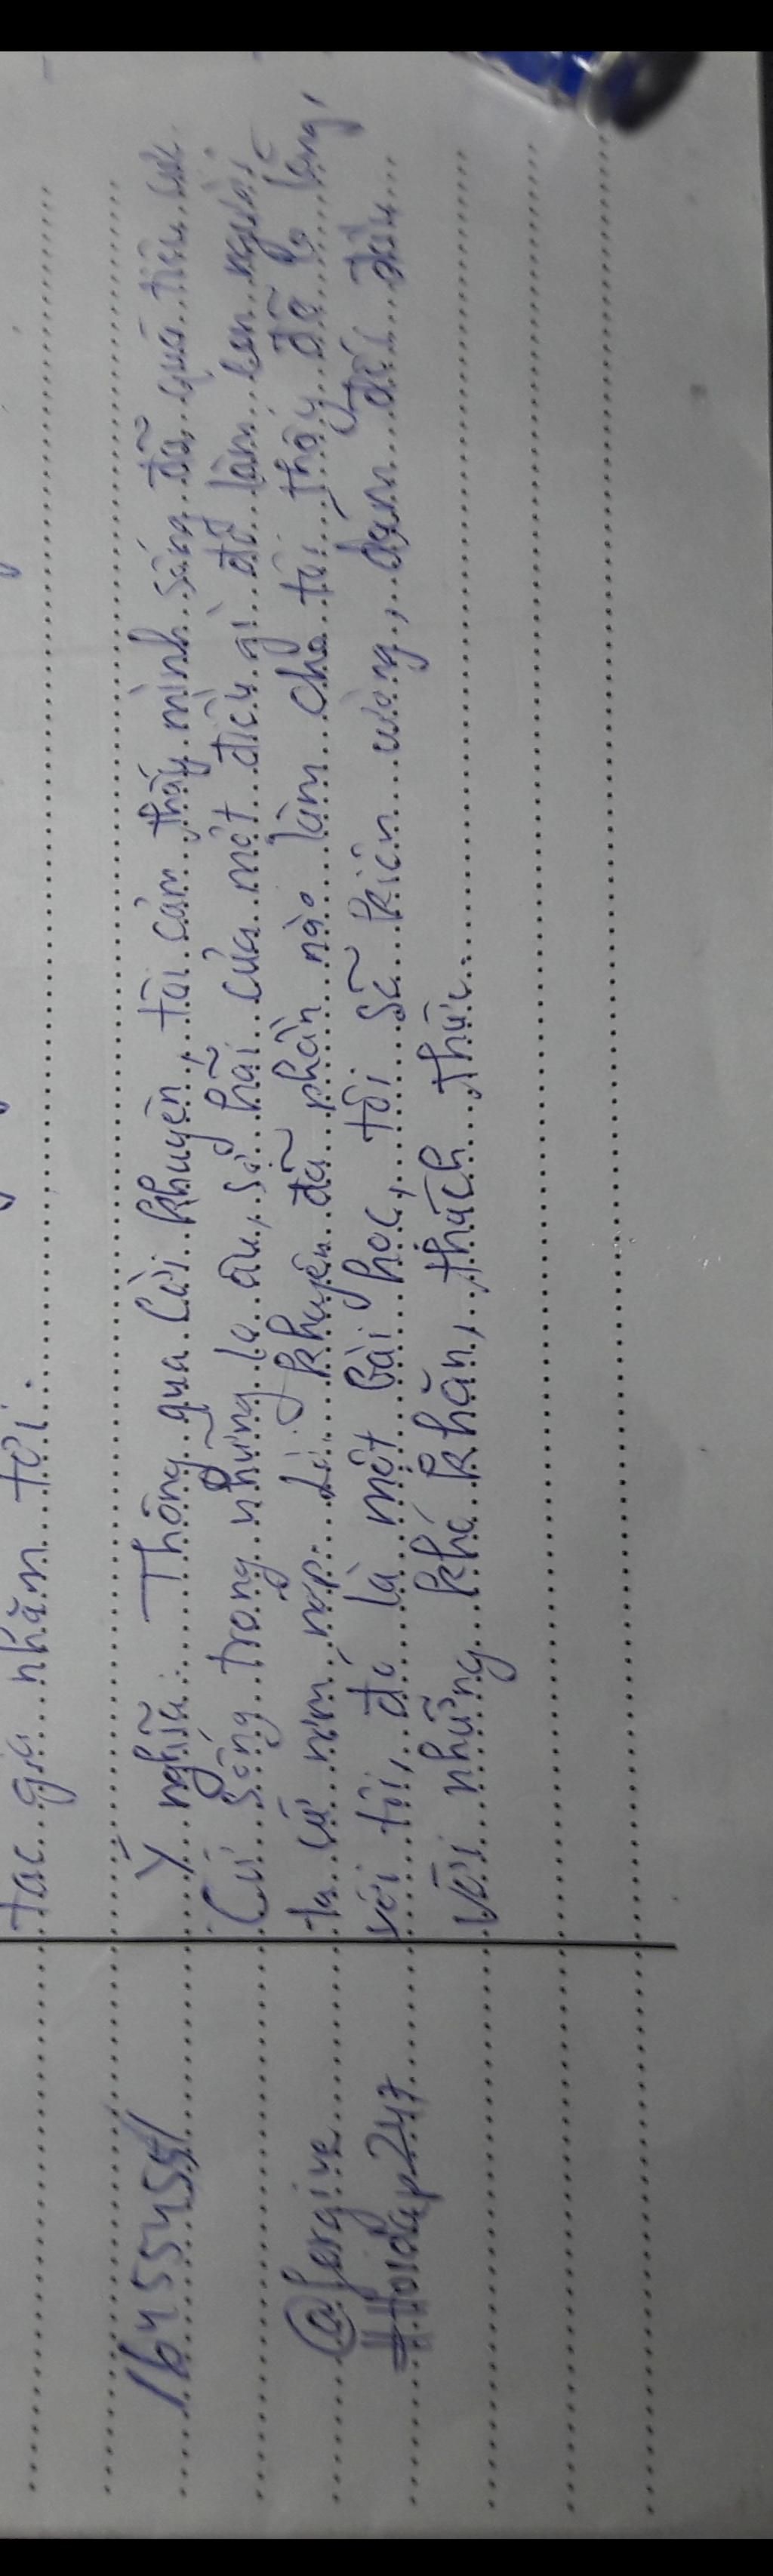 tác giả nhắm tới.
Ý nghĩa: Thông qua lời khuyên, tôi cảm thấy mình sống đã quá tiêu cực.
Cứ sống trong những lo âu, sợ hãi của một điều gì đó làm con người
ta cứ nơm nớp. Lời khuyên đã phần nào làm cho tôi thấy đỡ lo lắng,
với tôi, đó là một bài học, tôi sẽ kiên cường, dám đối đầu
với những khó khăn, thách thức.
16455455/
@fergive
#Hoidap247